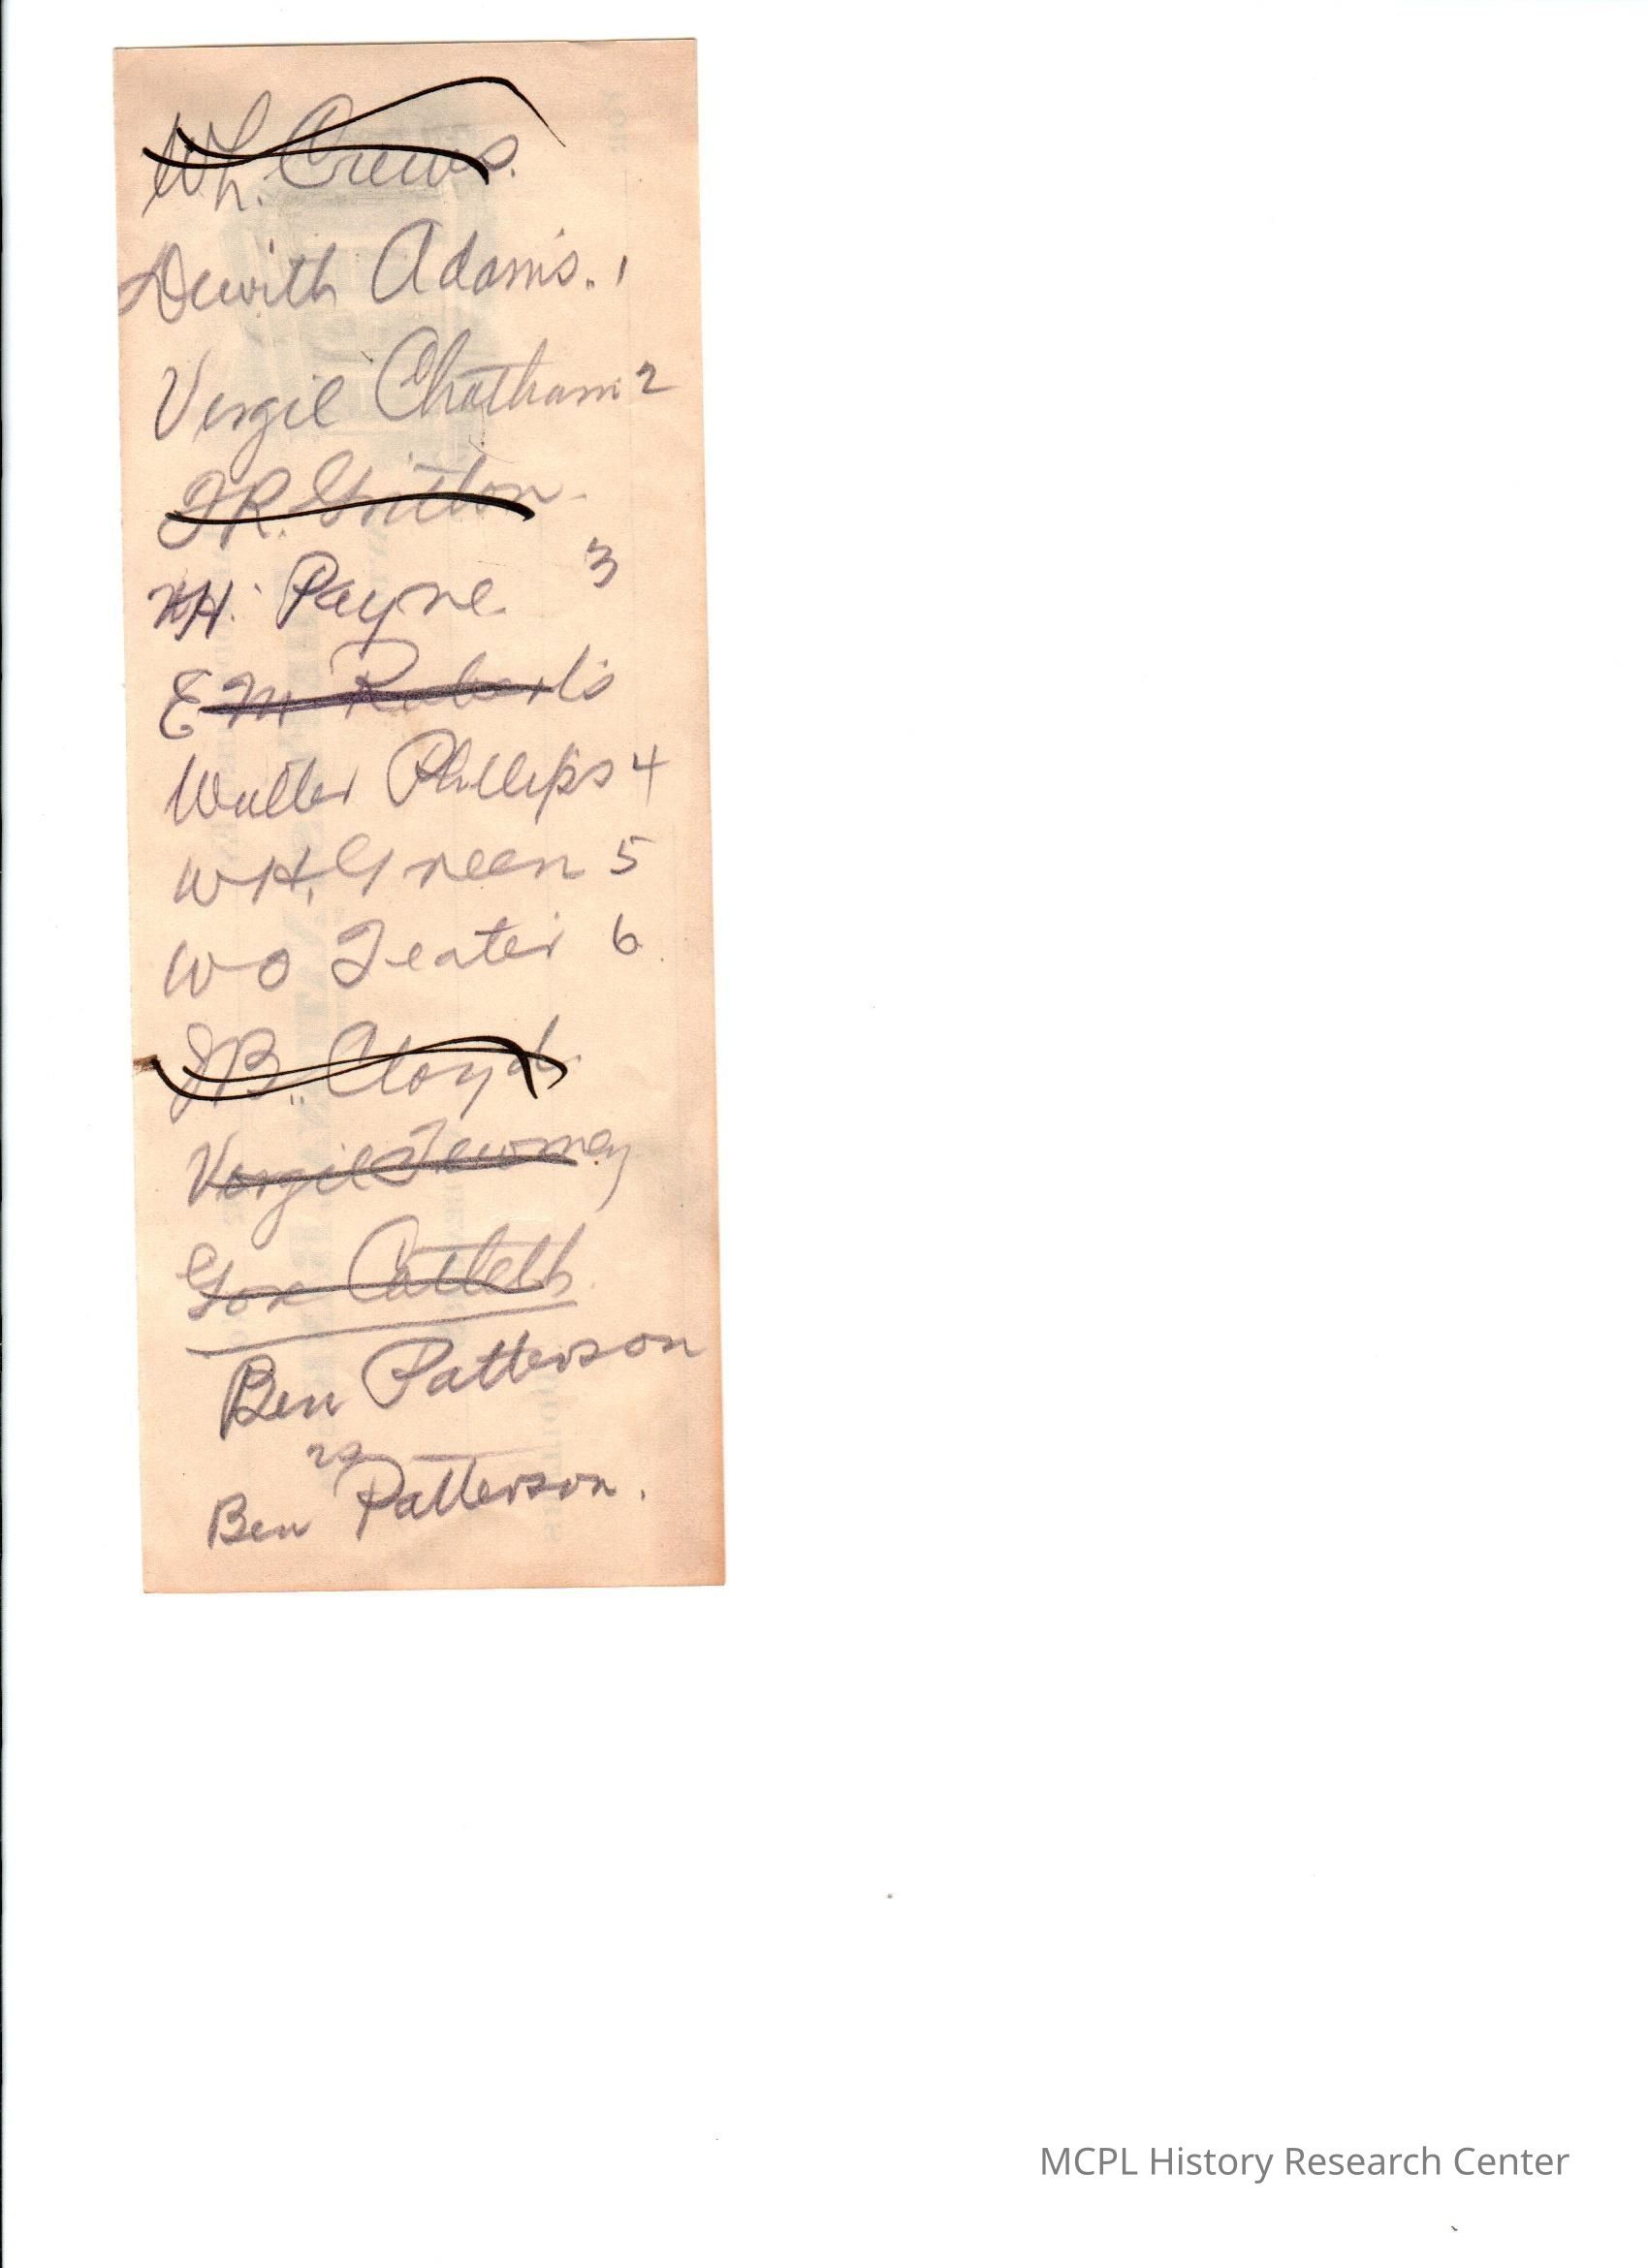 W.L. Crews.
Dewith Adams. 1
Virgil Chatham 2
J.R. Gritton.
H. Payne 3
E M Roberts
Walter Phillips 4
W H. Green 5
W O Teater 6
J B. Cloyd
Virgil
Catlett
Ben Patterson
29
Ben Patterson.
MCPL History Research Center